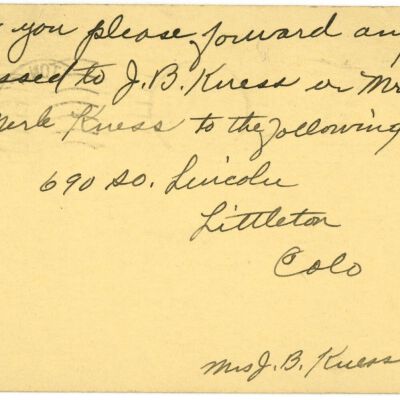 you please forward any
ssed to J. B. Kness or Mr
Merle Kness to the following
690 So. Lincoln
Littleton
Colo
Mrs J. B. Kness